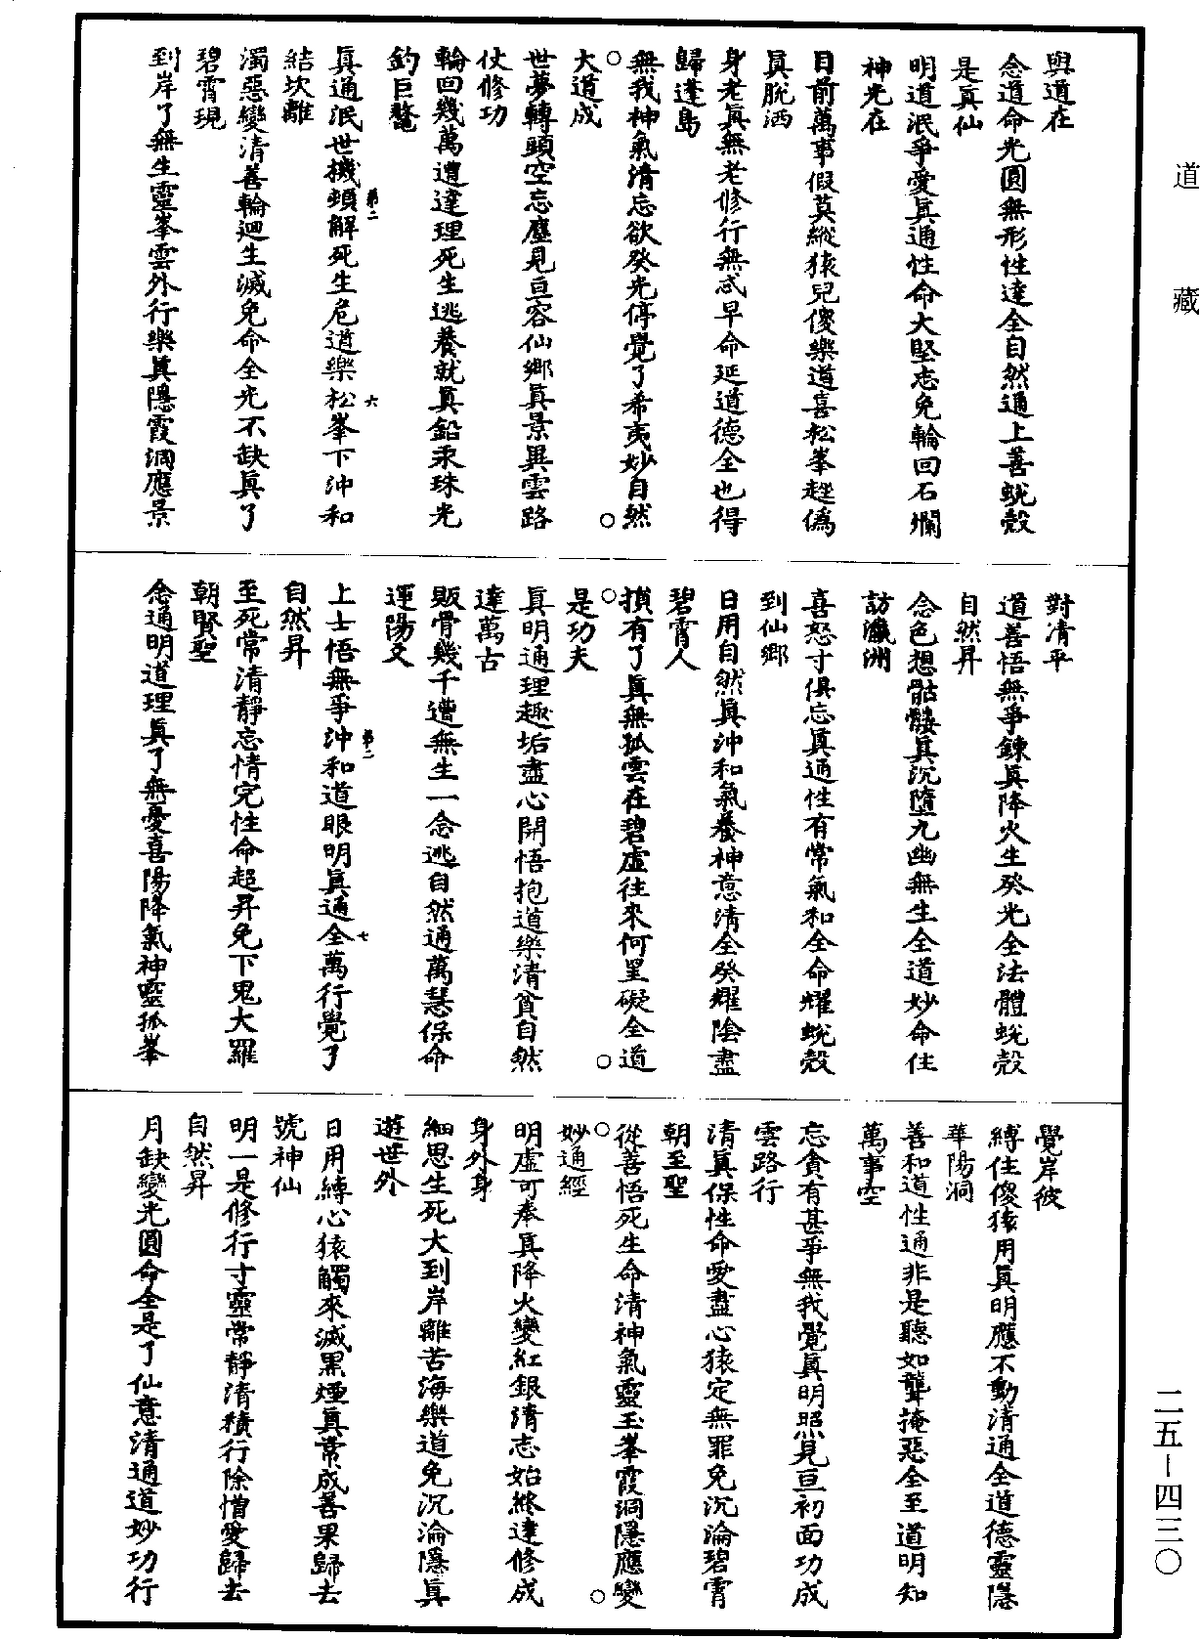 道藏
與道在
念道命光圓無形性達全自然通上善蛻殼
是真仙
明道泯爭愛眞通性命大堅志免輪回石爛
神光在
目前萬事假莫縱猿兒傻樂道喜松峯趓僞
眞脫洒
身老眞無老修行無忒早命延道德全也得
歸蓬島
無我神氣清忘欲癸光停覺了希夷妙自然
大道成
世夢轉頭空忘塵見亘容仙鄉眞景異雲路
仗修功
輪回幾萬遭達理死生逃養就眞鉛汞珠光
釣巨鼇
眞通泯世機頻解死生危道樂松峯下沖和
結坎離
濁惡變清善輪迴生滅免命全光不缺眞了
碧霄現
到岸了無生靈峯雲外行樂眞隱霞洞應景
第二
六
對清平
道善悟無爭鍊眞降火生癸光全法體蛻殼
自然昇
念色想骷髏眞沉墮九幽無生全道妙命住
訪瀛洲
喜怒寸俱忘眞通性有常氣和全命耀蛻殼
到仙鄉
日用自然眞沖和氣養神意清全癸耀陰盡
碧霄人
損有了眞無孤雲在碧虛往來何罣礙全道
是功夫
眞明通理趣垢盡心開悟抱道樂清貧自然
達萬古
販骨幾千遭無生一念逃自然通萬慧保命
運陽爻
上士悟無爭沖和道眼明眞通全萬行覺了
自然昇
至死常清靜忘情完性命超昇免下鬼大羅
朝賢聖
念通明道理眞了無憂喜陽降氣神靈孤峯
第二
七
覺岸彼
縛住傻猿用眞明應不動清通全道德靈隱
華陽洞
善和道性通非是聽如聾掩惡全至道明知
萬事空
忘貪有甚爭無我覺眞明照見亘初面功成
雲路行
清眞保性命愛盡心猿定無罪免沉淪碧霄
朝至聖
從善悟死生命清神氣靈玉峯霞洞隱應變
妙通經
明虛可奉眞降火變紅銀清志始終達修成
身外身
細思生死大到岸離苦海樂道免沉淪隱眞
遊世外
日用縛心猿觸來滅黑煙眞常成善果歸去
號神仙
明一是修行寸靈常靜清積行除憎愛歸去
自然昇
月缺變光圓命全是了仙意清通道妙功行
二五－四三〇